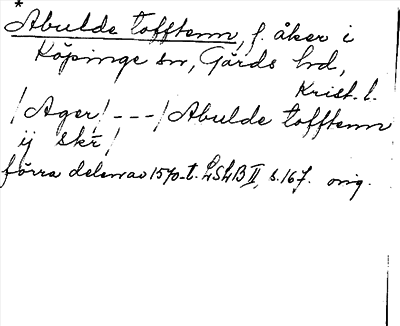 *
Abulde tofftenn, f. åker i
Köpinge sn, Gärds hd,
Krist. l.
/Ager/ - - - /Abulde tofftenn
ij skr/
förra delen av 1570-t. LSLB II, s. 167. orig.